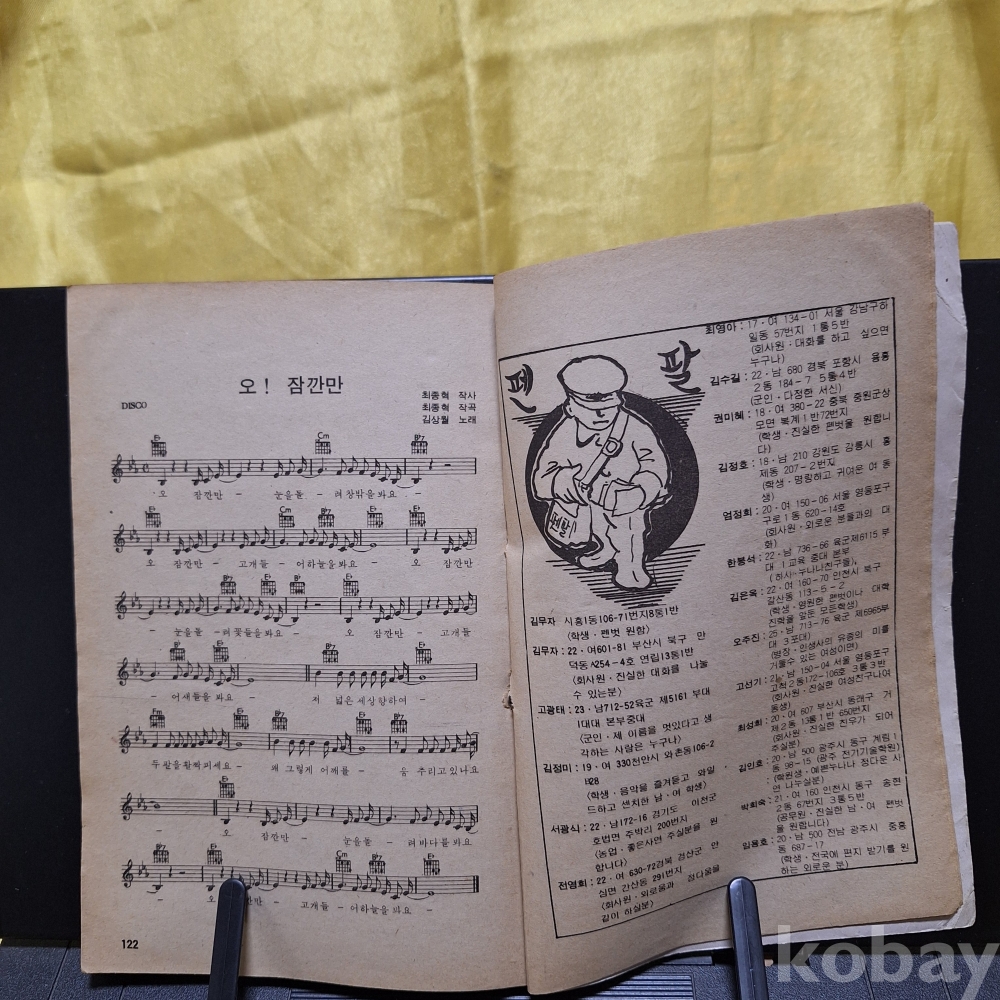 오! 잠깐만
DISCO
최종혁 작사
최종혁 작곡
김상월 노래
E♭ Cm B♭7
오 잠깐만 - 눈을돌 - 려창밖을봐요 -
E♭ Cm E♭ E♭
오 잠깐만 - 고개들 - 어하늘을봐요 - 오 잠깐
B♭7 B♭7 E♭
- 눈을돌 - 려꽃들을봐요 - 오 잠깐만 - 고개들
B♭7 E♭ B♭7
- 어새들을봐요 - 저 넓은세상향하여 -
E♭ B♭7 E♭
두팔을활짝펴세요 - 왜그렇게어깨를 - 움추리고있나요
- 오 잠깐만 - 눈을돌 - 려바다를봐요
E♭ Cm B♭7 E♭
고개들 - 어하늘을봐요 -
122
펜 팔
김무자 시흥1동106-71번지8통1반
(학생·펜벗 원함)
김무자: 22·여601-81 부산시 북구 만
덕동 A254-4호 연립13통1반
(회사원·진실한 대화를 나눌
수 있는분)
고광태: 23·남712-52육군 제5161 부대
1대대 본부중대
(군인·세 이름을 멋있다고 생
각하는 사람은 누구나)
김정미: 19·여 330천안시 와촌동106-2
(학생·음악을 즐겨듣고 와일
드하고 센치한 남·여 학생)
서광식: 22·남172-16 경기도 이천군
호법면 주박리 200번지
(농업·좋은사연 주실분을 원
합니다)
전영희: 22·여 630-72경북 경산군 안
심면 간산동 291번지
(회사원·외로움과 정다움을
같이 하실분)
최영아: 17·여 134-01 서울 강남구하
일동 57번지 1통5반
(회사원·대화를 하고 싶으면
누구나)
김수길: 22·남 680 경북 포항시 용흥
2동 184-7 5통4반
(군인·다정한 서신)
권미혜: 18·여 380-22 충북 중원군상
모면 북계1반72번지
(학생·진실한 펜벗을 원합니
다)
김정호: 18·남 210 강원도 강릉시 홍
제동 207-2번지
(학생·명랑하고 귀여운 여 동
생)
엄정희: 20·여 150-06 서울 영등포구
구로1동 620-14호
(회사원·외로운 분들과의 대
화)
한봉석: 22·남 736-66 육군제6115 부
대 1교육 중대 본부
(하사·누나나친구들)
김은옥: 22·여 160-70 인천시 북구
갈산동 113-5-2
(학생·영원한 펜벗이나 대학
진학을 앞둔 모든학생)
오주진: 25·남 713-76 육군 제6965부
대 3포대
(병장·인생사의 유종의 미를
거둘수 있는 여성이면)
고선기: 21·남 150-04 서울 영등포구
고척2동172-106호 3통3반
(회사원·진실한 여성친구나여
동생)
최성희: 20·여 607 부산시 동래구 거
제2동 13통1반 650번지
(회사원·진실한 친우가 되어
주실분)
김인호: 20·남 500 광주시 동구 계림1
동 98-15 (광주 전기기술학원)
(학원생·예쁜누나나 정다운 사
연 나누실분)
박희숙: 21·여 160 인천시 동구 송현
2동 67번지 3통5반
(공무원·진실한 남·여 펜벗
을 원합니다)
임용호: 20·남 500 전남 광주시 중흥
동 687-17
(학생·전국에 편지 받기를 원
하는 외로운 분)
kobay